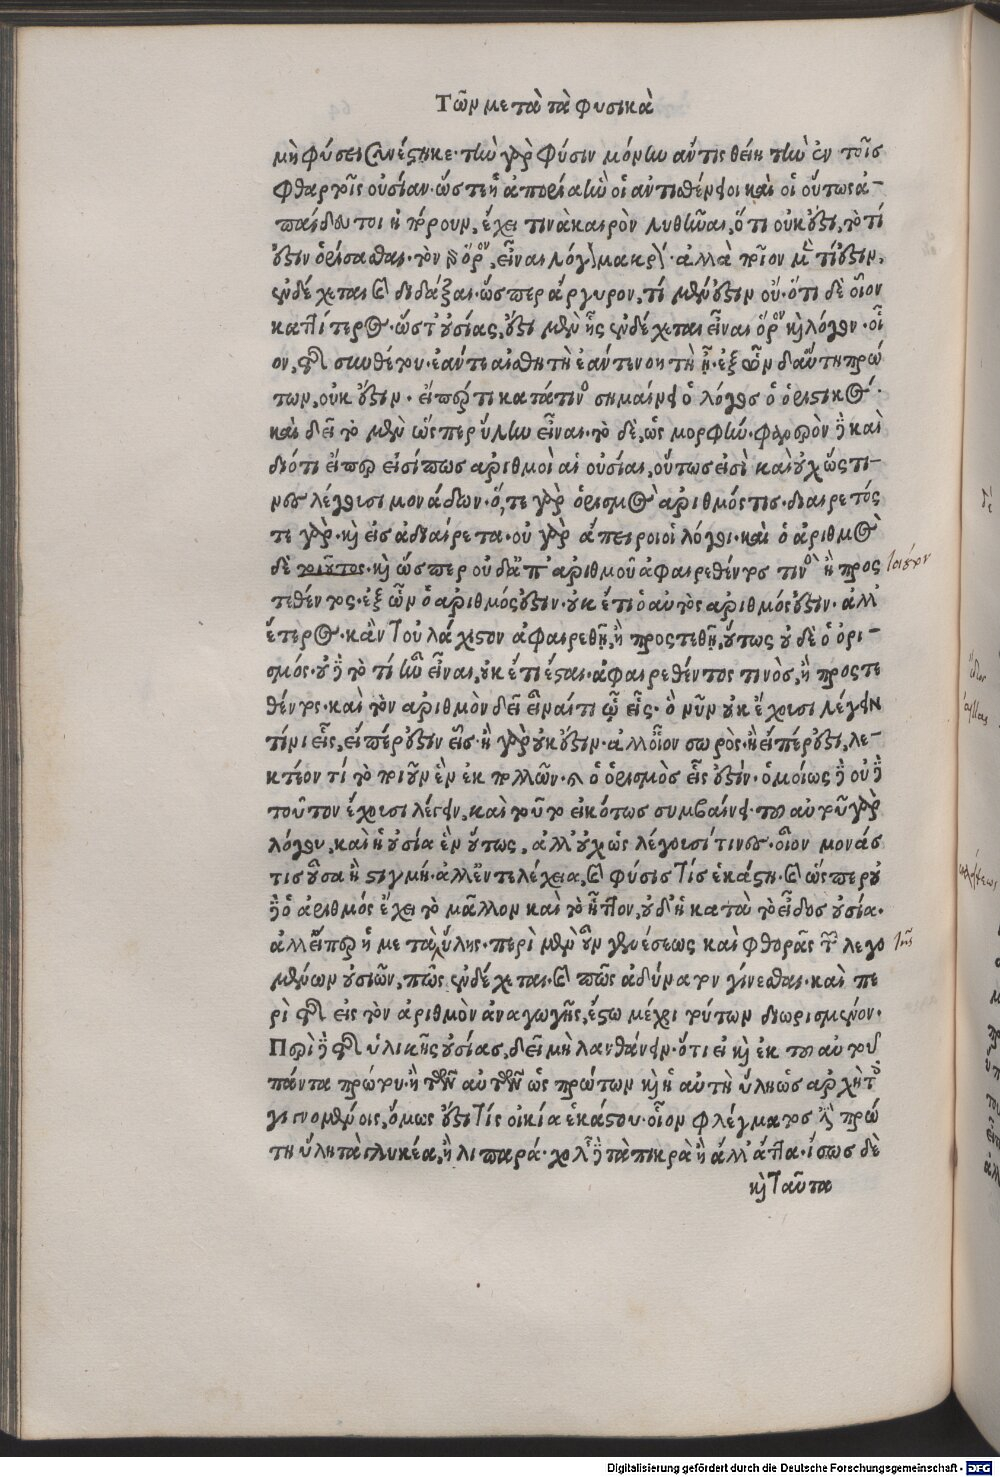 Τῶν μετὰ τὰ φυσικὰ
μὴ φύσει συνέστηκε· τὴν γὰρ φύσιν μόνην ἄν τις θείη τὴν ἐν τοῖς
φθαρτοῖς οὐσίαν· ὥστε ἡ ἀπορία ἣν οἱ ἀντισθένειοι καὶ οἱ οὕτως ἀ-
παίδευτοι ἠπόρουν, ἔχει τινὰ καιρὸν
ὅτι οὐκ ἔστι, τὸ τί
ἐστιν ὁρίσασθαι· τὸν γὰρ ὅρον, εἶναι λόγον μακρόν· ἀλλὰ ποῖον μέν τί ἐστιν,
ἐνδέχεται καὶ διδάξαι· ὥσπερ ἄργυρον, τί μέν ἐστιν οὔ· ὅτι δὲ οἷον
καττίτερος· ὥστ' οὐσίας, ἔστι μὲν ἧς ἐνδέχεται εἶναι ὅρον καὶ λόγον· οἷ
ον, τῆς συνθέτου· ἐάν τε αἰσθητὴ ἐάν τε νοητὴ ᾖ· ἐξ ὧν δ' αὕτη πρώ
των, οὐκ ἔστιν· εἴπερ τι κατά τινος σημαίνει ὁ λόγος ὁ ὁριστικός·
καὶ δεῖ τὸ μὲν ὥσπερ ὕλην εἶναι· τὸ δὲ, ὡς μορφήν· φανερὸν δὲ καὶ
διότι εἴπερ εἰσί πως ἀριθμοὶ αἱ οὐσίαι, οὕτως εἰσὶ καὶ οὐχ ὥς τι-
νες λέγουσι μονάδων· ὅ,τε γὰρ ὁρισμὸς ἀριθμός τις· διαιρετός
τε γὰρ· καὶ εἰς ἀδιαίρετα· οὐ γὰρ ἄπειροι οἱ λόγοι· καὶ ὁ ἀριθμὸς
δὲ τοιοῦτος· καὶ ὥσπερ οὐδ' ἀπ' ἀριθμοῦ ἀφαιρεθέντος τινὸς ἢ προς
τεθέντος· ἐξ ὧν ὁ ἀριθμός ἐστιν· οὐκ έτι ὁ αὐτὸς ἀριθμός ἐστιν· ἀλλ'
ἕτερος· κἂν τοὐλάχιστον ἀφαιρεθῇ, ἢ προςτεθῇ, οὕτως οὐδὲ ὁ ὁρι-
σμός· οὐδὲ τὸ τί ἦν εἶναι, οὐκ έτι ἔσται· ἀφαιρεθέντος τινὸς, ἢ προςτε
θέντος· καὶ τὸν ἀριθμὸν δεῖ εἶναί τι ᾧ εἷς· ὃ νῦν οὐκ ἔχουσι λέγειν
τίνι εἷς, εἴπέρ ἐστιν εἷς· ἢ γὰρ οὐκ ἔστιν· ἀλλ' οἷον σωρὸς· ἢ εἴπέρ ἐστι, λε-
κτέον τί τὸ ποιοῦν ἓν ἐκ πολλῶν· καὶ ὁ ὁρισμὸς εἷς ἐστίν· ὁμοίως δὲ οὐδὲ
τοῦτον ἔχουσι λέγειν, καὶ τοῦτο εἰκότως συμβαίνει· τοῦ αὐτοῦ γὰρ
λόγου, καὶ ἡ οὐσία ἓν οὕτως, ἀλλ' οὐχ ὡς λέγουσί τινες· οἷον μονάς
τις οὖσα ἢ στιγμή· ἀλλ' ἐντελέχεια, καὶ φύσις τίς ἑκάστη· καὶ ὥσπερ οὐ
δὲ ὁ ἀριθμός ἔχει τὸ μᾶλλον καὶ τὸ ἧττον, οὐδ' ἡ κατὰ τὸ εἶδος οὐσία·
ἀλλ' εἴπερ ἡ μετὰ ὕλης· περὶ μὲν οὖν γενέσεως καὶ φθορᾶς τ λεγο
μένων οὐσιῶν, πῶς ἐνδέχεται· καὶ πῶς ἀδύνατον γίνεσθαι· καὶ πε
ρὶ τῆς εἰς τὸν ἀριθμὸν ἀναγωγῆς, ἔστω μέχρι τούτων διωρισμένον·
Περὶ δὲ τῆς ὑλικῆς οὐσίας, δεῖ μὴ λανθάνειν· ὅτι εἰ καὶ ἐκ τοῦ αὐτοῦ
πάντα πρώτου· ἢ τῶν αὐτῶν ὡς πρώτων καὶ ἡ αὐτὴ ὕλη ὡς ἀρχὴ τοῖς
γιγνομένοις, ὅμως ἔστι τίς οἰκία ἑκάστου· οἷον φλέγματος πρώ
τη ὕλη τὰ γλυκέα, ἢ λιπαρά· χολῆς δὲ τὰ πικρὰ ἢ ἀλλ' ἄττα· ἴσως δὲ
καὶ ταῦτα
Digitalisierung gefördert durch die Deutsche Forschungsgemeinschaft - DFG